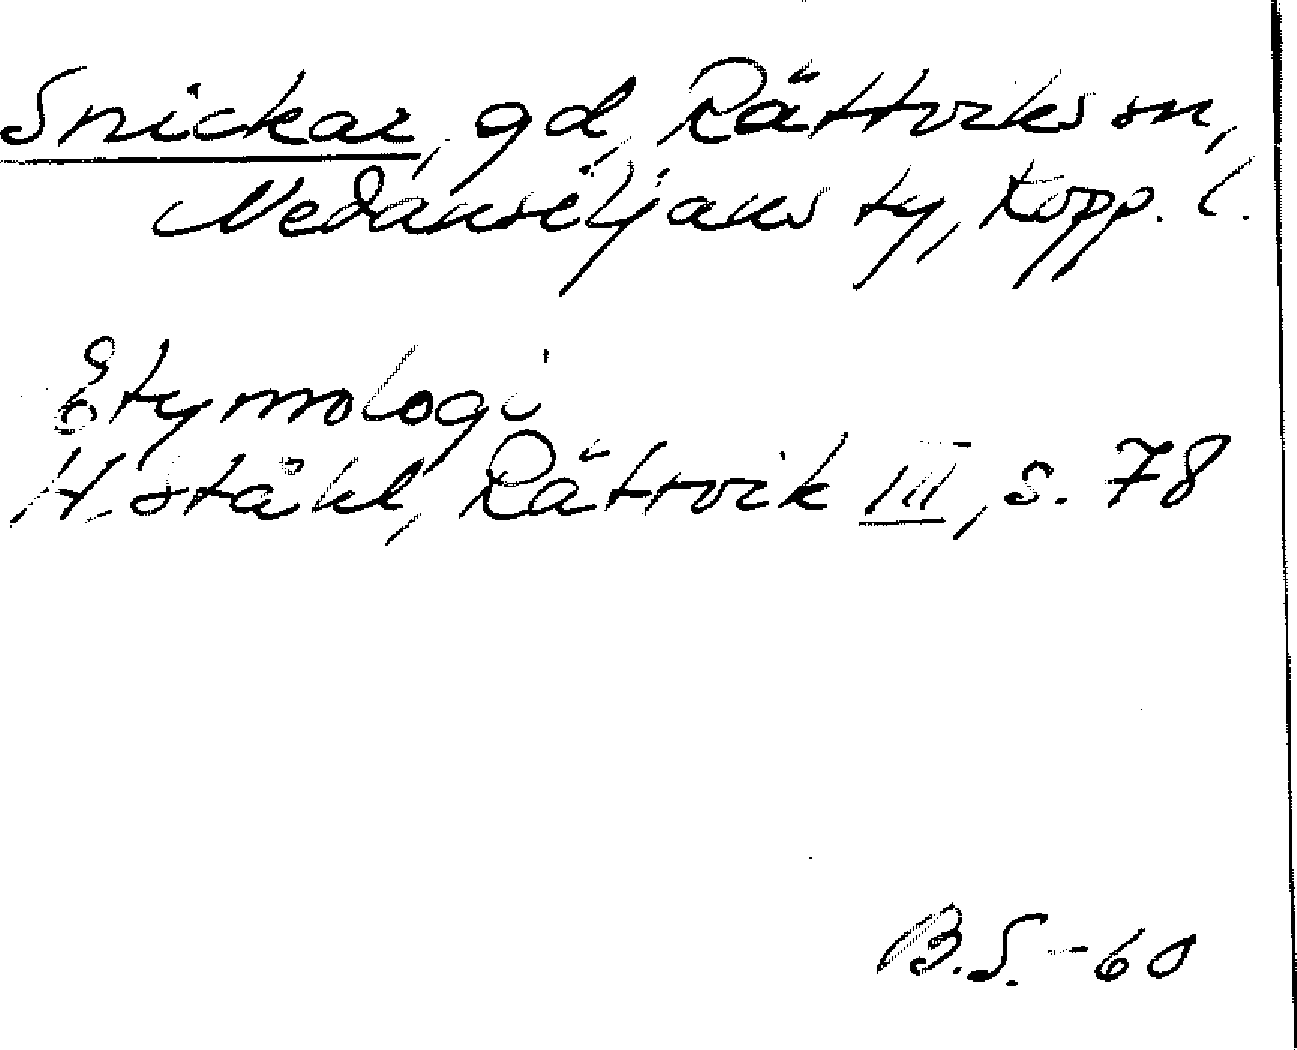 Snickar, gd, Rättviks sn,
Nedansiljans ty, Kopp. l.
Etymologi
H. Ståhl, Rättvik III, s. 78
B.S. - 60